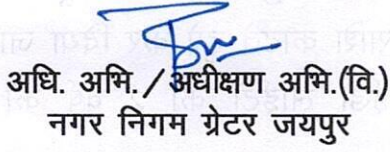 अधि. अभि. / अधीक्षण अभि.(वि.)
नगर निगम ग्रेटर जयपुर